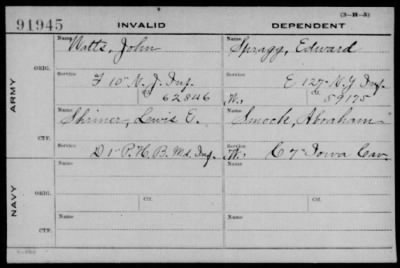 (3-18-5)
91945 INVALID DEPENDENT
Name Name
Watts, John Spragg, Edward
Service Service
F 10" N. J. Inf. E 127" N.Y. Inf.
62846 W. 59175
ORIG. ORIG.
ARMY
Name Name
Shriner, Lewis E. Smock, Abraham
Service Service
D 1" P. H. B. Md. Inf. W. C 7" Iowa Cav.
CTF. CTF.
Name Name
NAVY
Ctf. Ctf.
Name Name
Ctf. Ctf.